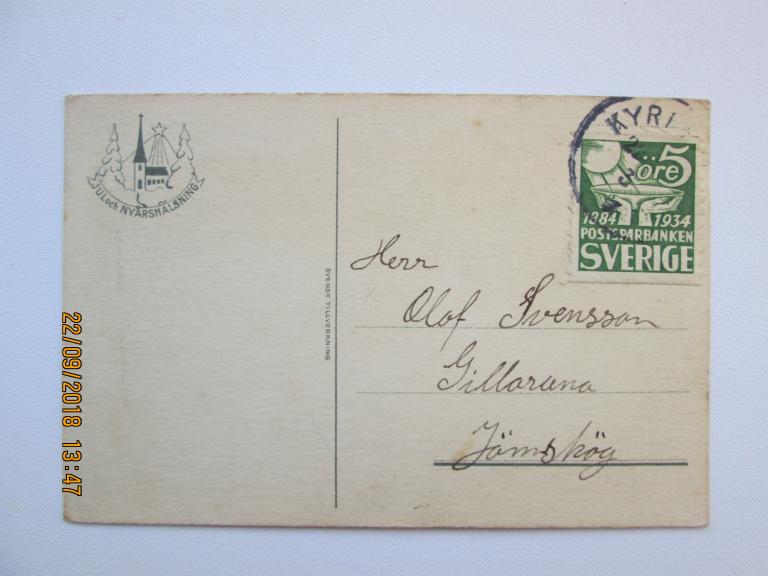 JUL och NYÅRSHÄLSNING
SVENSK TILLVERKNING
KYR
öre 5
1884 1934
POSTSPARBANKEN
SVERIGE
Herr
Olof Svensson
Gillaruna
Jämshög
22/09/2018 13:47